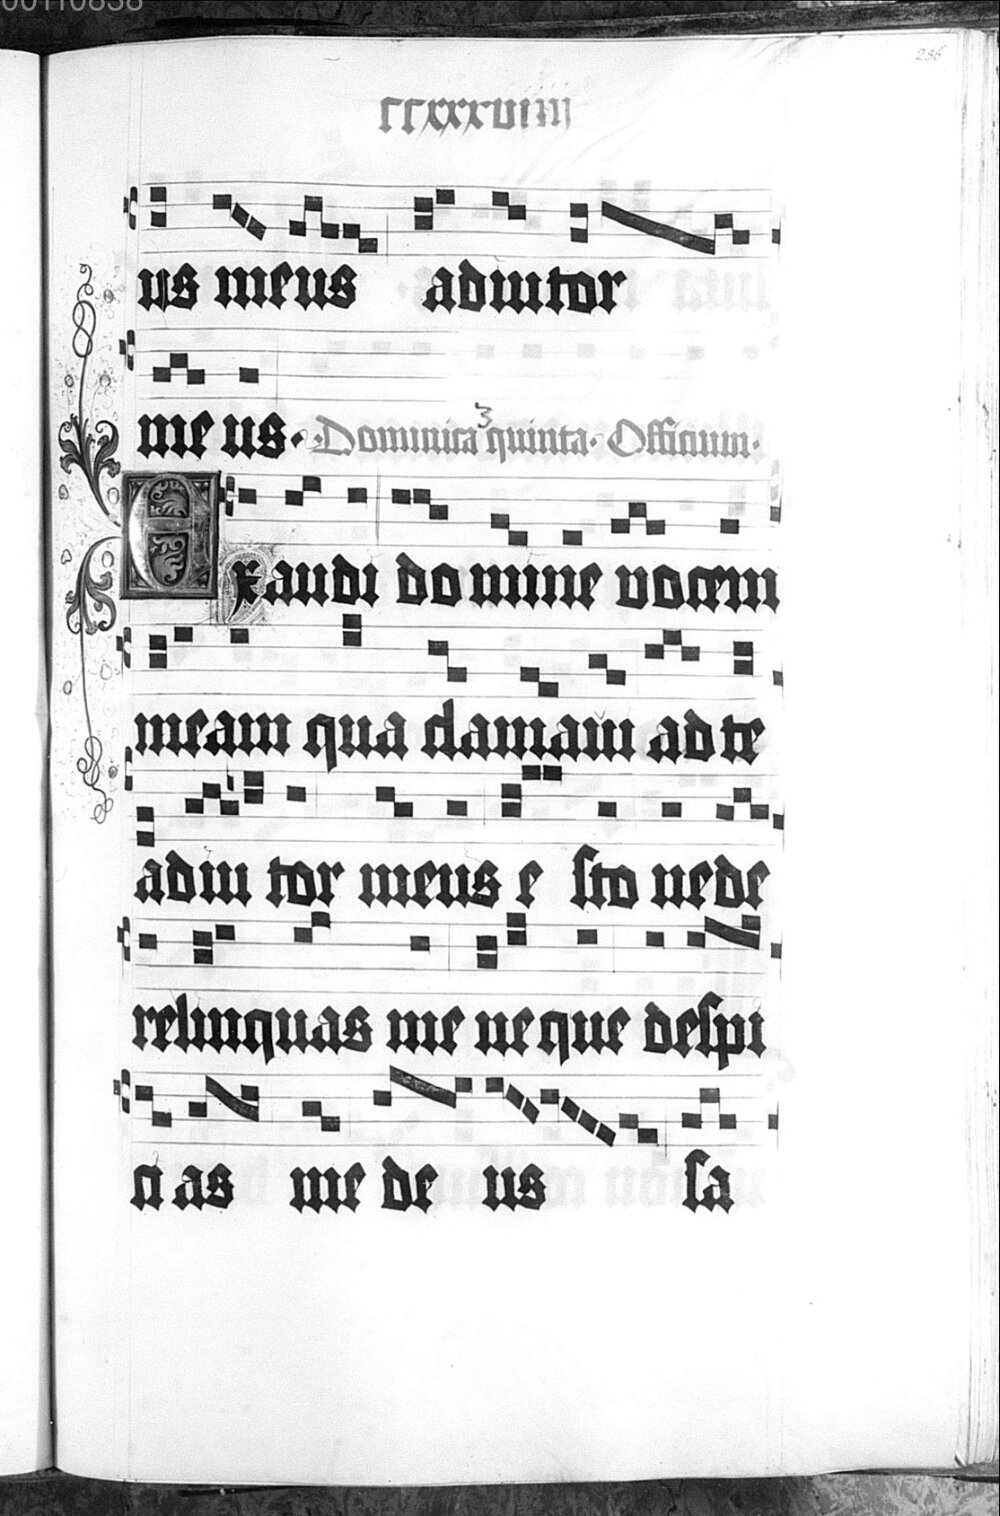 00110838
256
ccxxxviiii
us meus adiutor
me us. Dominica quinta. Officium.
Exaudi do mine vocem
meam qua clamaui ad te
adiu tor meus e sto ne de
relinquas me ne que despi
ci as me de us sa